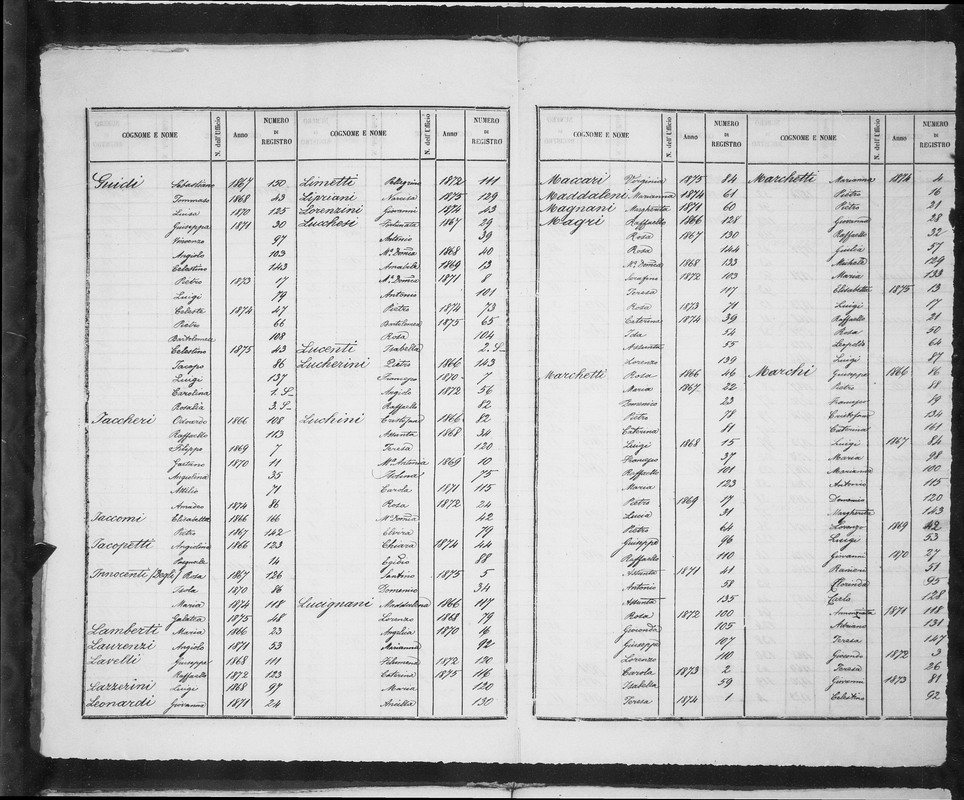 COGNOME E NOME N. dell'Ufficio Anno NUMERO DI REGISTRO
Guidi Sebastiano 1867 150
Tommaso 1868 43
Luisa 1870 125
Giuseppa 1871 30
Vincenzo 97
Angiolo 103
Celestino 143
Pietro 1873 17
Luigi 79
Celeste 1874 47
Pietro 66
Bartolomeo 108
Celestino 1875 43
Jacopo 86
Luigi 137
Carolina 1. S
Rosalia 3. S
Jaccheri Odoardo 1866 108
Raffaello 113
Filippo 1869 7
Gaetano 1870 11
Angiolina 35
Attilio 71
Amadeo 1874 86
Jaccomi Elisabetta 1866 166
Pietro 1867 142
Jacopetti Angiolina 1866 123
Pasquale 14
Innocenti (Degli) Rosa 1867 126
Isola 1870 86
Maria 1874 118
Galatea 1875 48
Lamberti Maria 1866 23
Laurenzi Angiolo 1871 53
Lavelli Giuseppe 1868 111
Raffaello 1872 123
Lazzerini Luigi 1868 97
Leonardi Giovanni 1871 24
COGNOME E NOME N. dell'Ufficio Anno NUMERO DI REGISTRO
Limetti Pellegrino 1872 111
Lipriani Narcisa 1875 129
Lorenzini Giovanni 1874 43
Lucchesi Fortunata 1867 29
Antonio 39
Ma. Domca 1868 40
Annabila 1869 13
Ma. Domca 1871 8
Antonio 101
Pietro 1874 73
Bartolomea 1875 65
Rosa 104
Lucenti Isabella 2. S
Lucherini Pietro 1866 143
Francesco 1870 7
Angiolo 1872 56
Raffaello 82
Luchini Cristofano 1866 82
Assunta 1868 34
Teresa 120
Ma. Antonia 1869 10
75
Carola 1871 115
Rosa 1872 24
Ma. Domca 42
Elvira 79
Chiara 1874 44
Egidio 88
Santino 1875 5
Domenico 34
Lucignani Maddalena 1866 117
Lorenzo 1868 79
Angelica 1870 16
Marianna 92
Filomena 1872 120
Caterina 1875 116
Maria 120
Ancilla 130
COGNOME E NOME N. dell'Ufficio Anno NUMERO DI REGISTRO
Maccari Virginia 1875 84
Maddaleni Marianna 1874 61
Magnani Margherita 1871 60
Magri Raffaello 1866 128
Rosa 1867 130
Rosa 144
Ma. Domca 1868 133
Serafino 1872 103
Teresa 117
Rosa 1873 71
Caterina 1874 39
Ida 54
Assunta 55
Lorenzo 139
Marchetti Rosa 1866 46
Maria 1867 22
Domenico 23
Pietro 78
Caterina 81
Luigi 1868 15
Francesco 37
Raffaello 101
Maria 123
Pietro 1869 17
Lucia 31
Pietro 64
Giuseppe 96
Raffaello 110
Assunta 1871 41
Antonio 58
Assunta 135
Rosa 1872 100
Gioconda 105
Giuseppe 107
Lorenzo 110
Carola 1873 2
Isabella 59
Teresa 1874 1
COGNOME E NOME N. dell'Ufficio Anno NUMERO DI REGISTRO
Marchetti Marianna 1874 4
Pietro 16
Pietro 21
Giovanni 28
Raffaello 32
Giulia 57
Michele 129
Maria 133
Elisabetta 1875 13
Luigi 17
Raffaello 21
Rosa 50
Leopoldo 64
Luigi 87
Marchi Giuseppe 1866 86
Pietro 88
Francesco 89
Cristofano 134
Caterina 161
Luigi 1867 84
Maria 98
Marianna 100
Antonio 115
Domenico 120
Margherita 143
Lorenzo 1869 42
Luigi 53
Giovanni 1870 27
Ranieri 51
Florinda 95
Carlo 128
Annunziata 1871 118
Adriano 131
Teresa 147
Gioconda 1872 3
Teresa 26
Giovanni 1873 81
Celestino 92